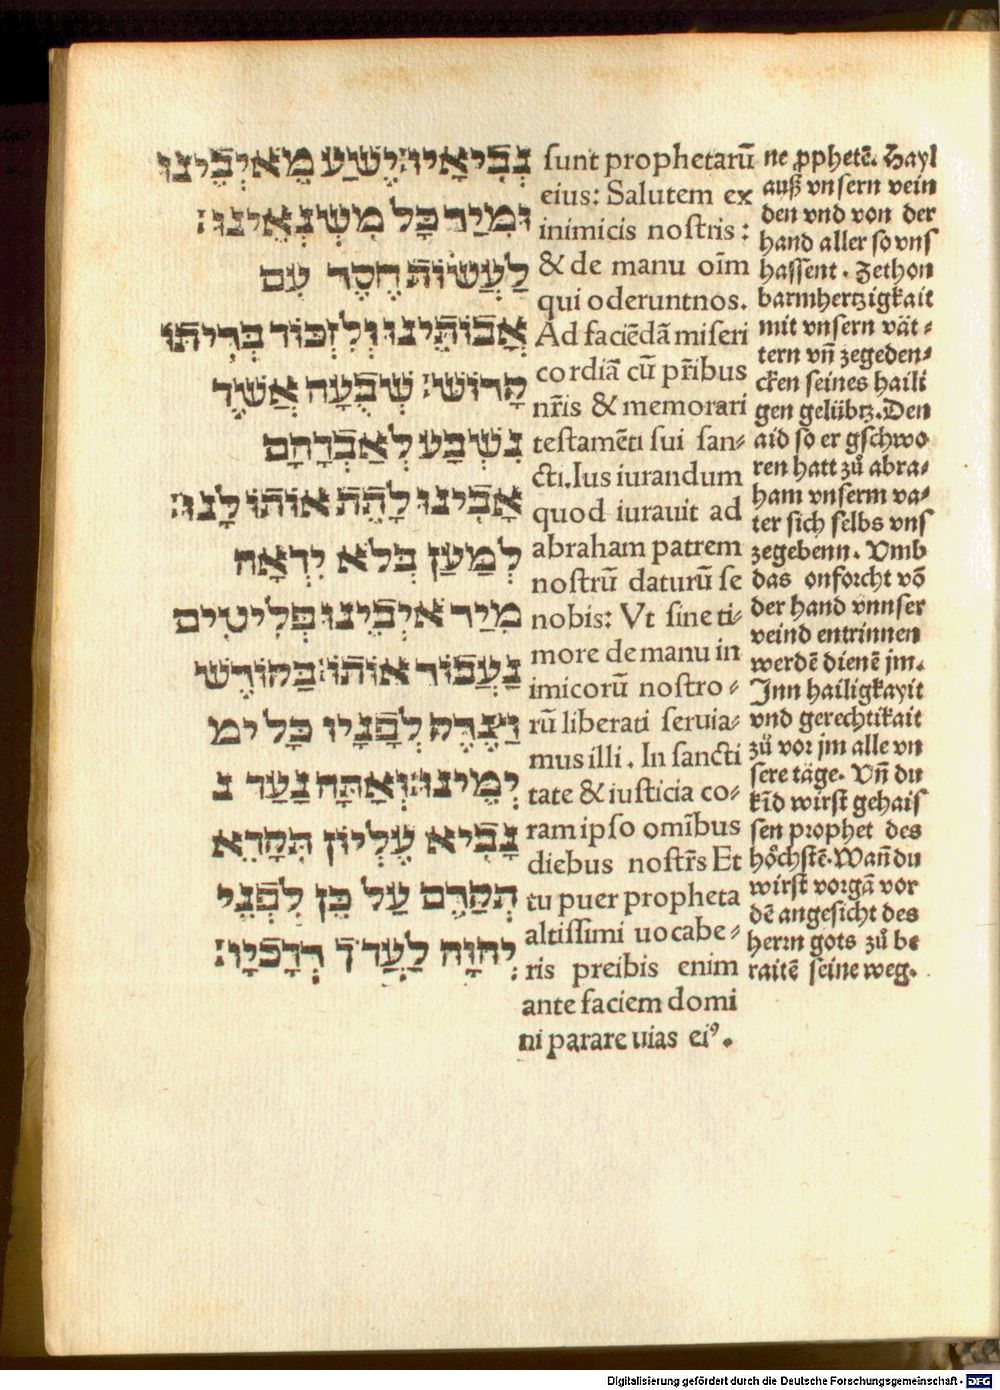 נְבִיאָיו׃יֶשַׁע מֶאֹיְבֵינוּ
וּמִיַד כָּל מִשְׂנְאֵינוּ׃
לַעֲשׂוֹת חֶסֶד עִם
אֲבוֹתֵינוּ וְלִזְכּוֹר בְּרִיתוֹ
קָדוֹשׁ׃ שְׁבֻעָה אֲשֶׁר
נִשְׁבַּע לְאַבְרָהָם
אָבִינוּ לָתֵת אוֹתוֹ לָנוּ׃
לְמַעַן בְּלֹא יִרְאָה
מִיַד אֹיְבֵינוּ פְּלִיטִים
נַעֲבוֹד אוֹתוֹ׃בַּקוֹדֶשׁ
וַצֶדֶק לְפָנָיו כָּל ימ
יָמֵינוּ׃וְאַתָּה נַעַר נ
נָבִיא עֶלְיוֹן תִּקָרֵא
תְקַדֵם עַל כֵּן לִפְנֵי
יְהוָה לַעֲרֹךְ דְרָכָיו׃
sunt prophetarū
eius: Salutem ex
inimicis nostris :
& de manu oīm
qui oderuntnos.
Ad faciēdā miseri
cordiā cū pr̄ibus
nr̄is & memorari
testamēti sui san⸗
cti.Ius iurandum
quod iurauit ad
abraham patrem
nostrū daturū se
nobis: Vt sine ti⸗
more de manu in
imicorū nostro⸗
rū liberati seruia⸗
mus illi . In sancti
tate & iusticia co⸗
ram ipso omībus
diebus nostr̄s Et
tu puer propheta
altissimi uocabe⸗
ris preibis enim
ante faciem domi
ni parare uias ei⁹.
ne ꝓphetē. Hayl
auß vnsern vein
den vnd von der
hand aller so vns
hassent . Zethon
barmhertzigkait
mit vnsern vät⸗
tern vñ zegeden⸗
cken seines haili
gen gelübtz.Den
aid so er gschwo
ren hatt zů abra⸗
ham vnserm va⸗
ter sich selbs vns
zegebenn. Vmb
das onforcht vō
der hand vnnser
veind entrinnen
werdē dienē jm.
Jnn hailigkayit
vnd gerechtikait
zů vor jm alle vn
sere täge. Vñ du
kīd wirst gehais
sen prophet des
höchstē.Wañ du
wirst vorgā vor
dē angesicht des
herrn gots zů be
raitē seine weg.
Digitalisierung gefördert durch die Deutsche Forschungsgemeinschaft - DFG